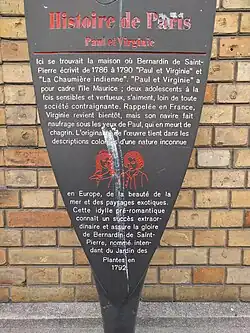 Histoire de Paris
Paul et Virginie
Ici se trouvait la maison où Bernardin de Saint-
Pierre écrivit de 1786 à 1790 "Paul et Virginie" et
"La Chaumière indienne". "Paul et Virginie" a
pour cadre l'île Maurice ; deux adolescents à la
fois sensibles et vertueux, s'aiment, loin de toute
société contraignante. Rappelée en France,
Virginie revient bientôt, mais son navire fait
naufrage sous les yeux de Paul, qui en meurt de
chagrin. L'originalité de l'œuvre tient dans les
descriptions colorées d'une nature inconnue
en Europe, de la beauté de la
mer et des paysages exotiques.
Cette idylle pré-romantique
connaît un succès extraor-
dinaire et assure la gloire
de Bernardin de Saint-
Pierre, nommé inten-
dant du Jardin des
Plantes en
1792